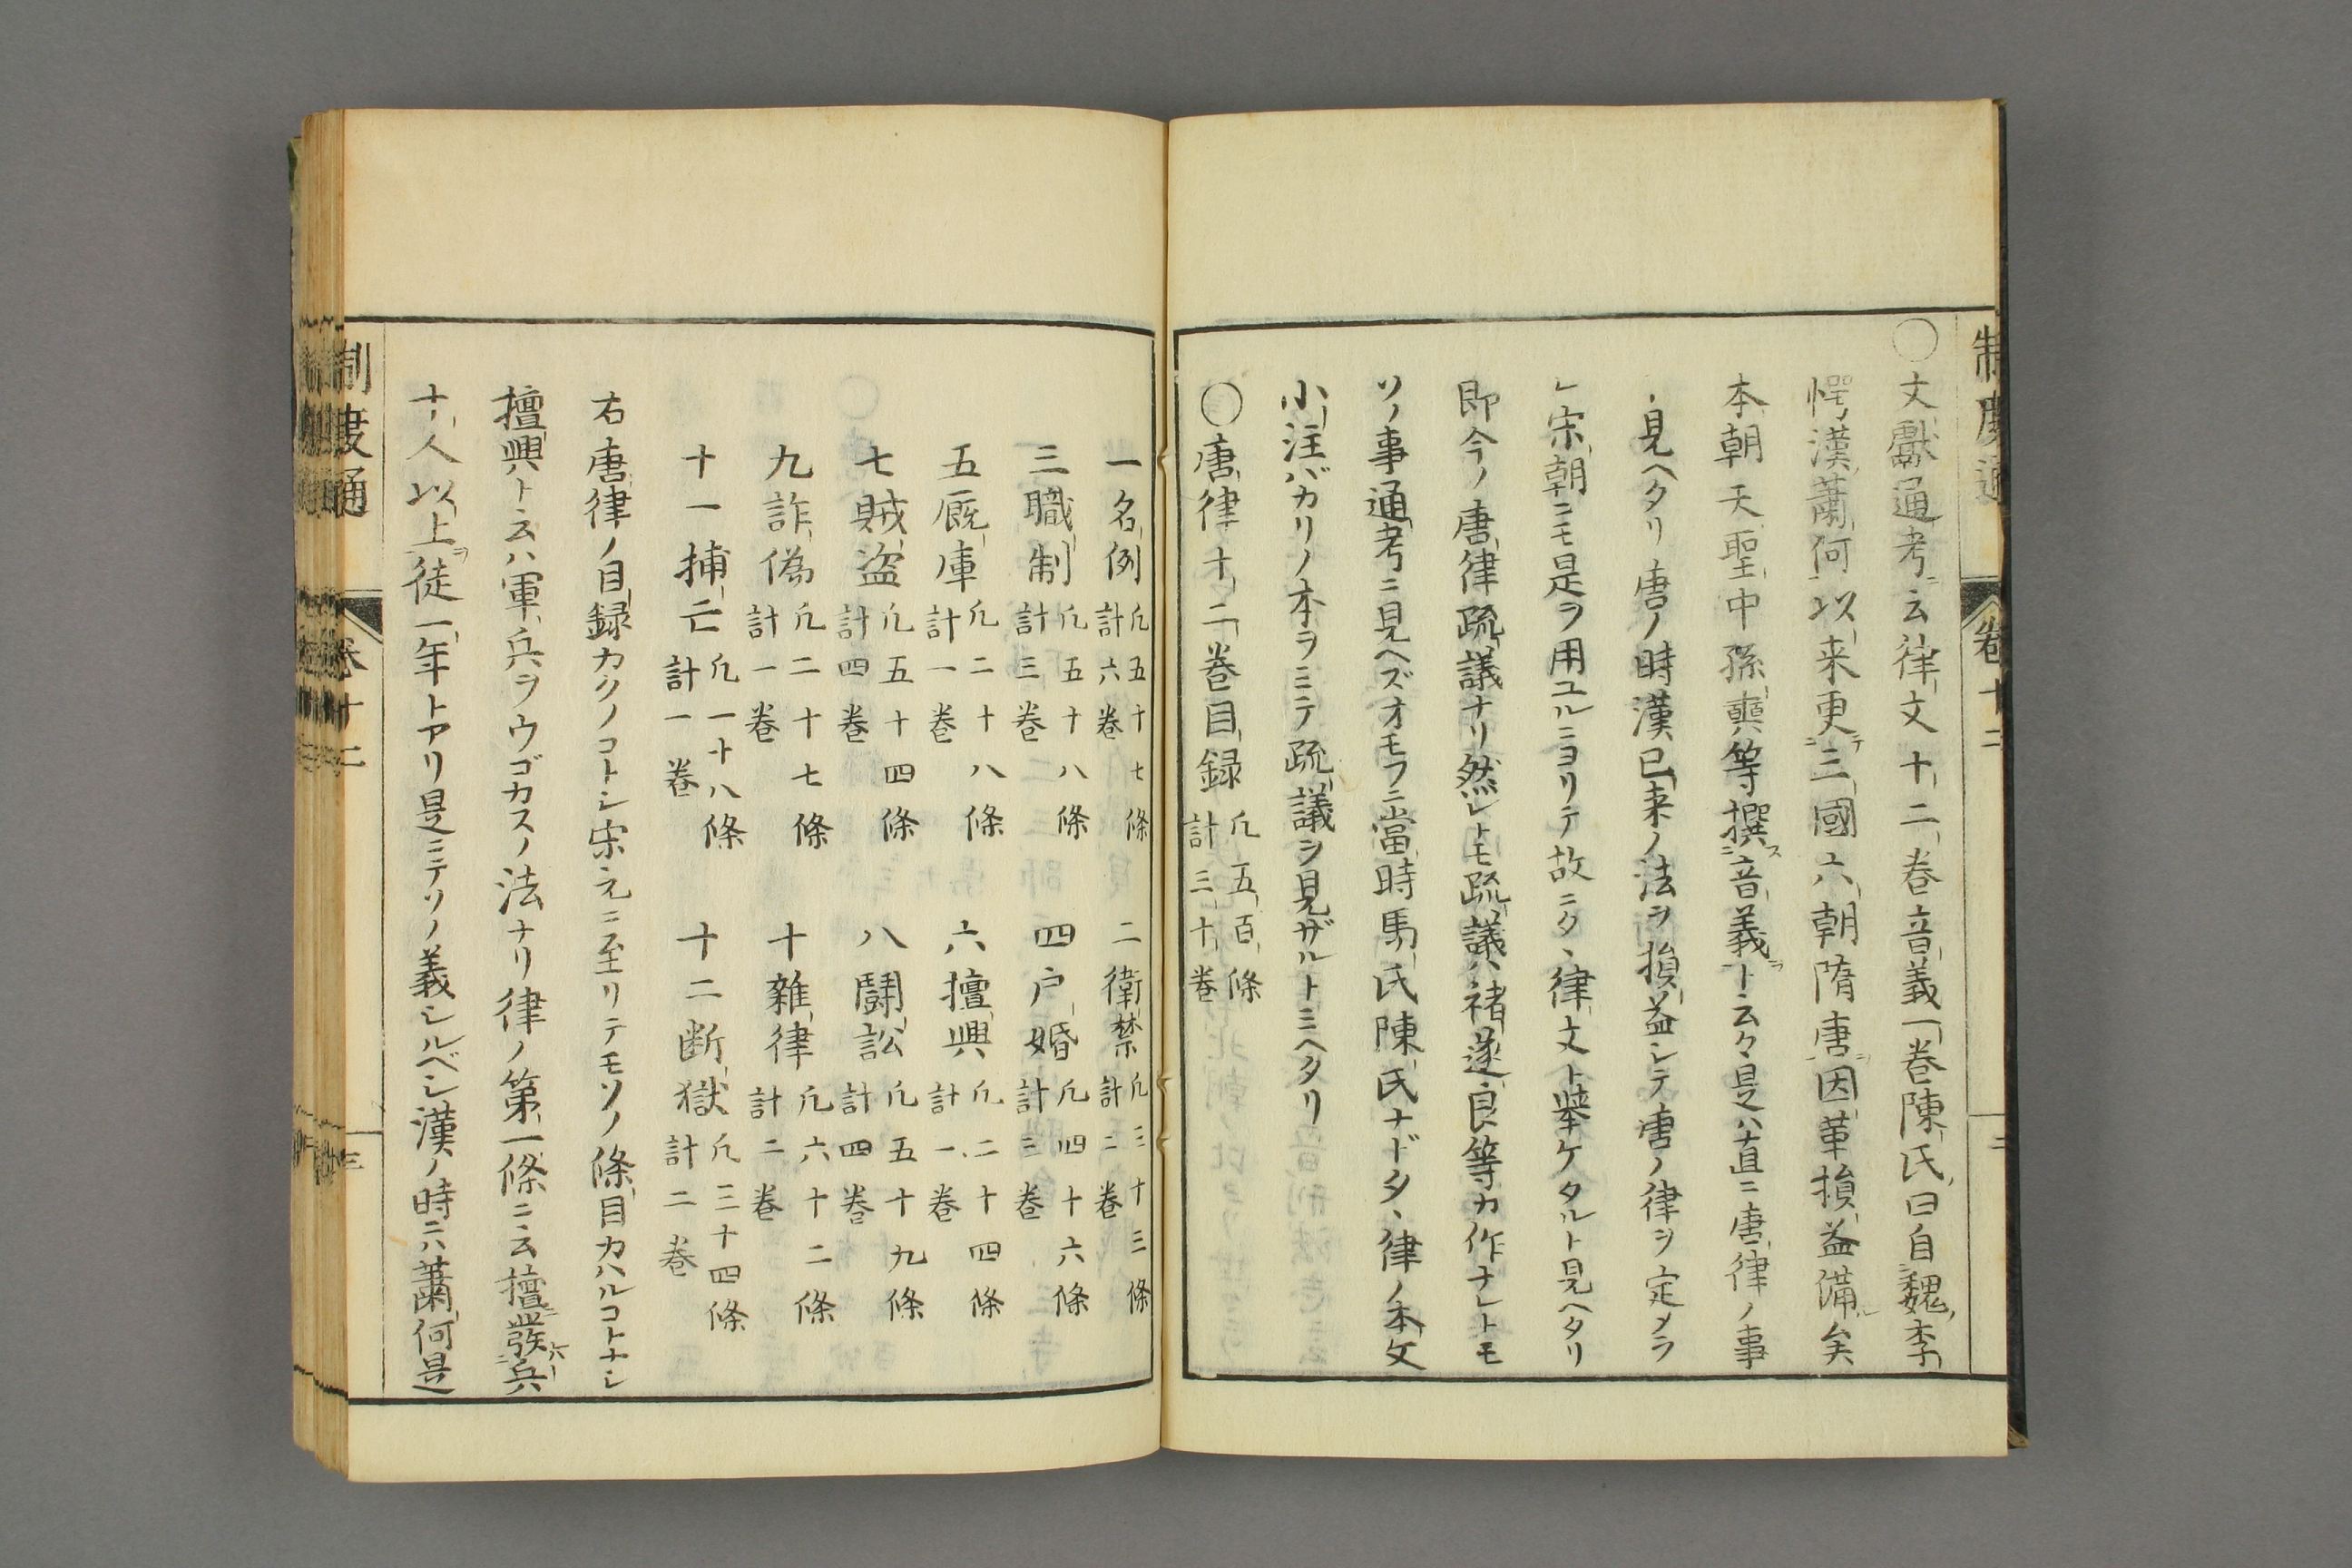 制度通 卷十二 二
〇文獻通考ニ云律文十二卷音義一卷陳氏曰自魏李
愕漢蕭何以来更三國六朝隋唐因革損益備矣
本朝天聖中孫奭等撰音義ト云々是ハ直ニ唐律ノ事
ヽ見ヘタリ唐ノ時漢已来ノ法ヲ損益シテ唐ノ律ヲ定メラ
レ宋朝ニモ是ヲ用ユルニヨリテ故ニタヽ律文ト挙ケタルト見ヘタリ
即今ノ唐律疏議ナリ然レトモ疏議ハ褚遂良等カ作ナレトモ
ソノ事通考ニ見ヘズオモフニ當時馬氏陳氏ナドタヽ律ノ本文
小注バカリノ本ヲミテ疏議ヲ見ザルトミヘタリ
〇唐律十二卷目録 凢五百條 計三十卷
一名例 凢五十七條 計六卷 二衛禁 凢三十三條 計二卷
三職制 凢五十八條 計三卷 四户婚 凢四十六條 計三卷
五厩庫 凢二十八條 計一卷 六擅興 凢二十四條 計一卷
七賊盗 凢五十四條 計四卷 八鬪訟 凢五十九條 計四卷
九詐偽 凢二十七條 計一卷 十雜律 凢六十二條 計二卷
十一捕亡 凢一十八條 計一卷 十二断獄 凢三十四條 計二卷
右唐律ノ目録カクノコトシ宋元ニ至リテモソノ條目カハルコトナシ
擅興ト云ハ軍兵ヲウゴカスノ法ナリ律ノ第一條ニ云擅發兵
十人以上徒一年トアリ是ニテソノ義シルベシ漢ノ時ニハ蕭何是
制度通 卷十二 三